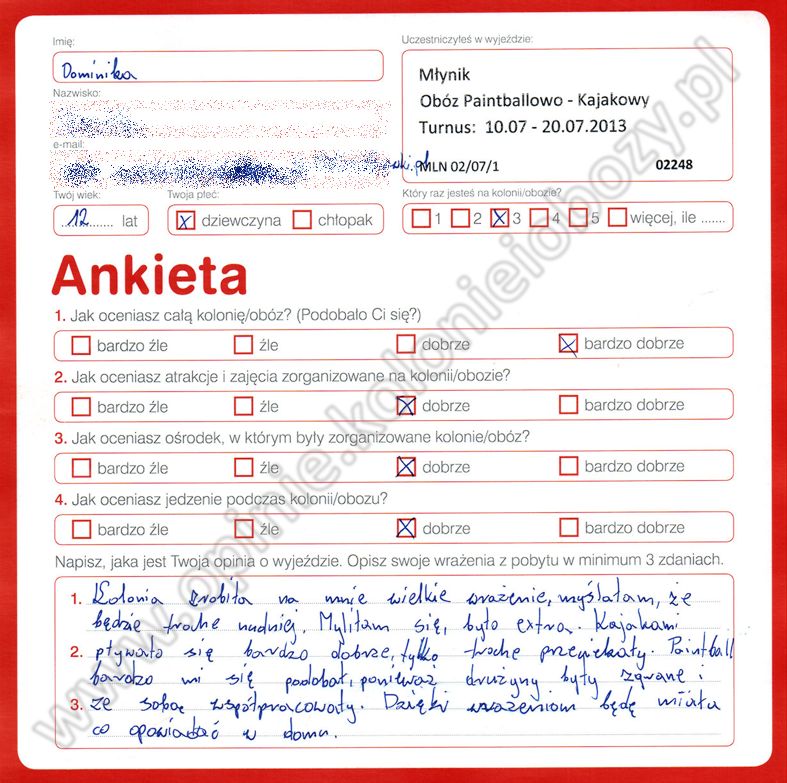 Imię:
Dominika
Nazwisko:
e-mail:
Twój wiek:
12 lat
Twoja płeć:
dziewczyna chłopak
Uczestniczyłeś w wyjeździe:
Młynik
Obóz Paintballowo - Kajakowy
Turnus: 10.07 - 20.07.2013
MLN 02/07/1 02248
Który raz jesteś na kolonii/obozie?
1 2 3 4 5 więcej, ile .......
Ankieta
1. Jak oceniasz całą kolonię/obóz? (Podobało Ci się?)
bardzo źle źle dobrze bardzo dobrze
2. Jak oceniasz atrakcje i zajęcia zorganizowane na kolonii/obozie?
bardzo źle źle dobrze bardzo dobrze
3. Jak oceniasz ośrodek, w którym były zorganizowane kolonie/obóz?
bardzo źle źle dobrze bardzo dobrze
4. Jak oceniasz jedzenie podczas kolonii/obozu?
bardzo źle źle dobrze bardzo dobrze
Napisz, jaka jest Twoja opinia o wyjeździe. Opisz swoje wrażenia z pobytu w minimum 3 zdaniach.
1. Kolonia zrobiła na mnie wielkie wrażenie, myślałam, że
będzie troche nudniej. Myliłam się, było extra. Kajakami
2. pływało się bardzo dobrze, tylko troche przeciekały. Paintball
bardzo mi się podobał, ponieważ drużyny były zgrane i
3. ze sobą współpracowały. Dzięki wrażeniom będę miała
co opowiadać w domu.
www.opinie.kolonieiobozy.pl